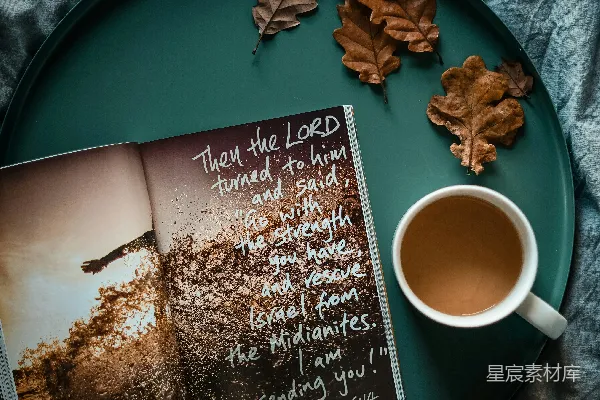 Then the LORD
turned to him
and said,
"Go with
the strength
you have
and rescue
Israel from
the Midianites.
I am
sending you!"
星宸素材库